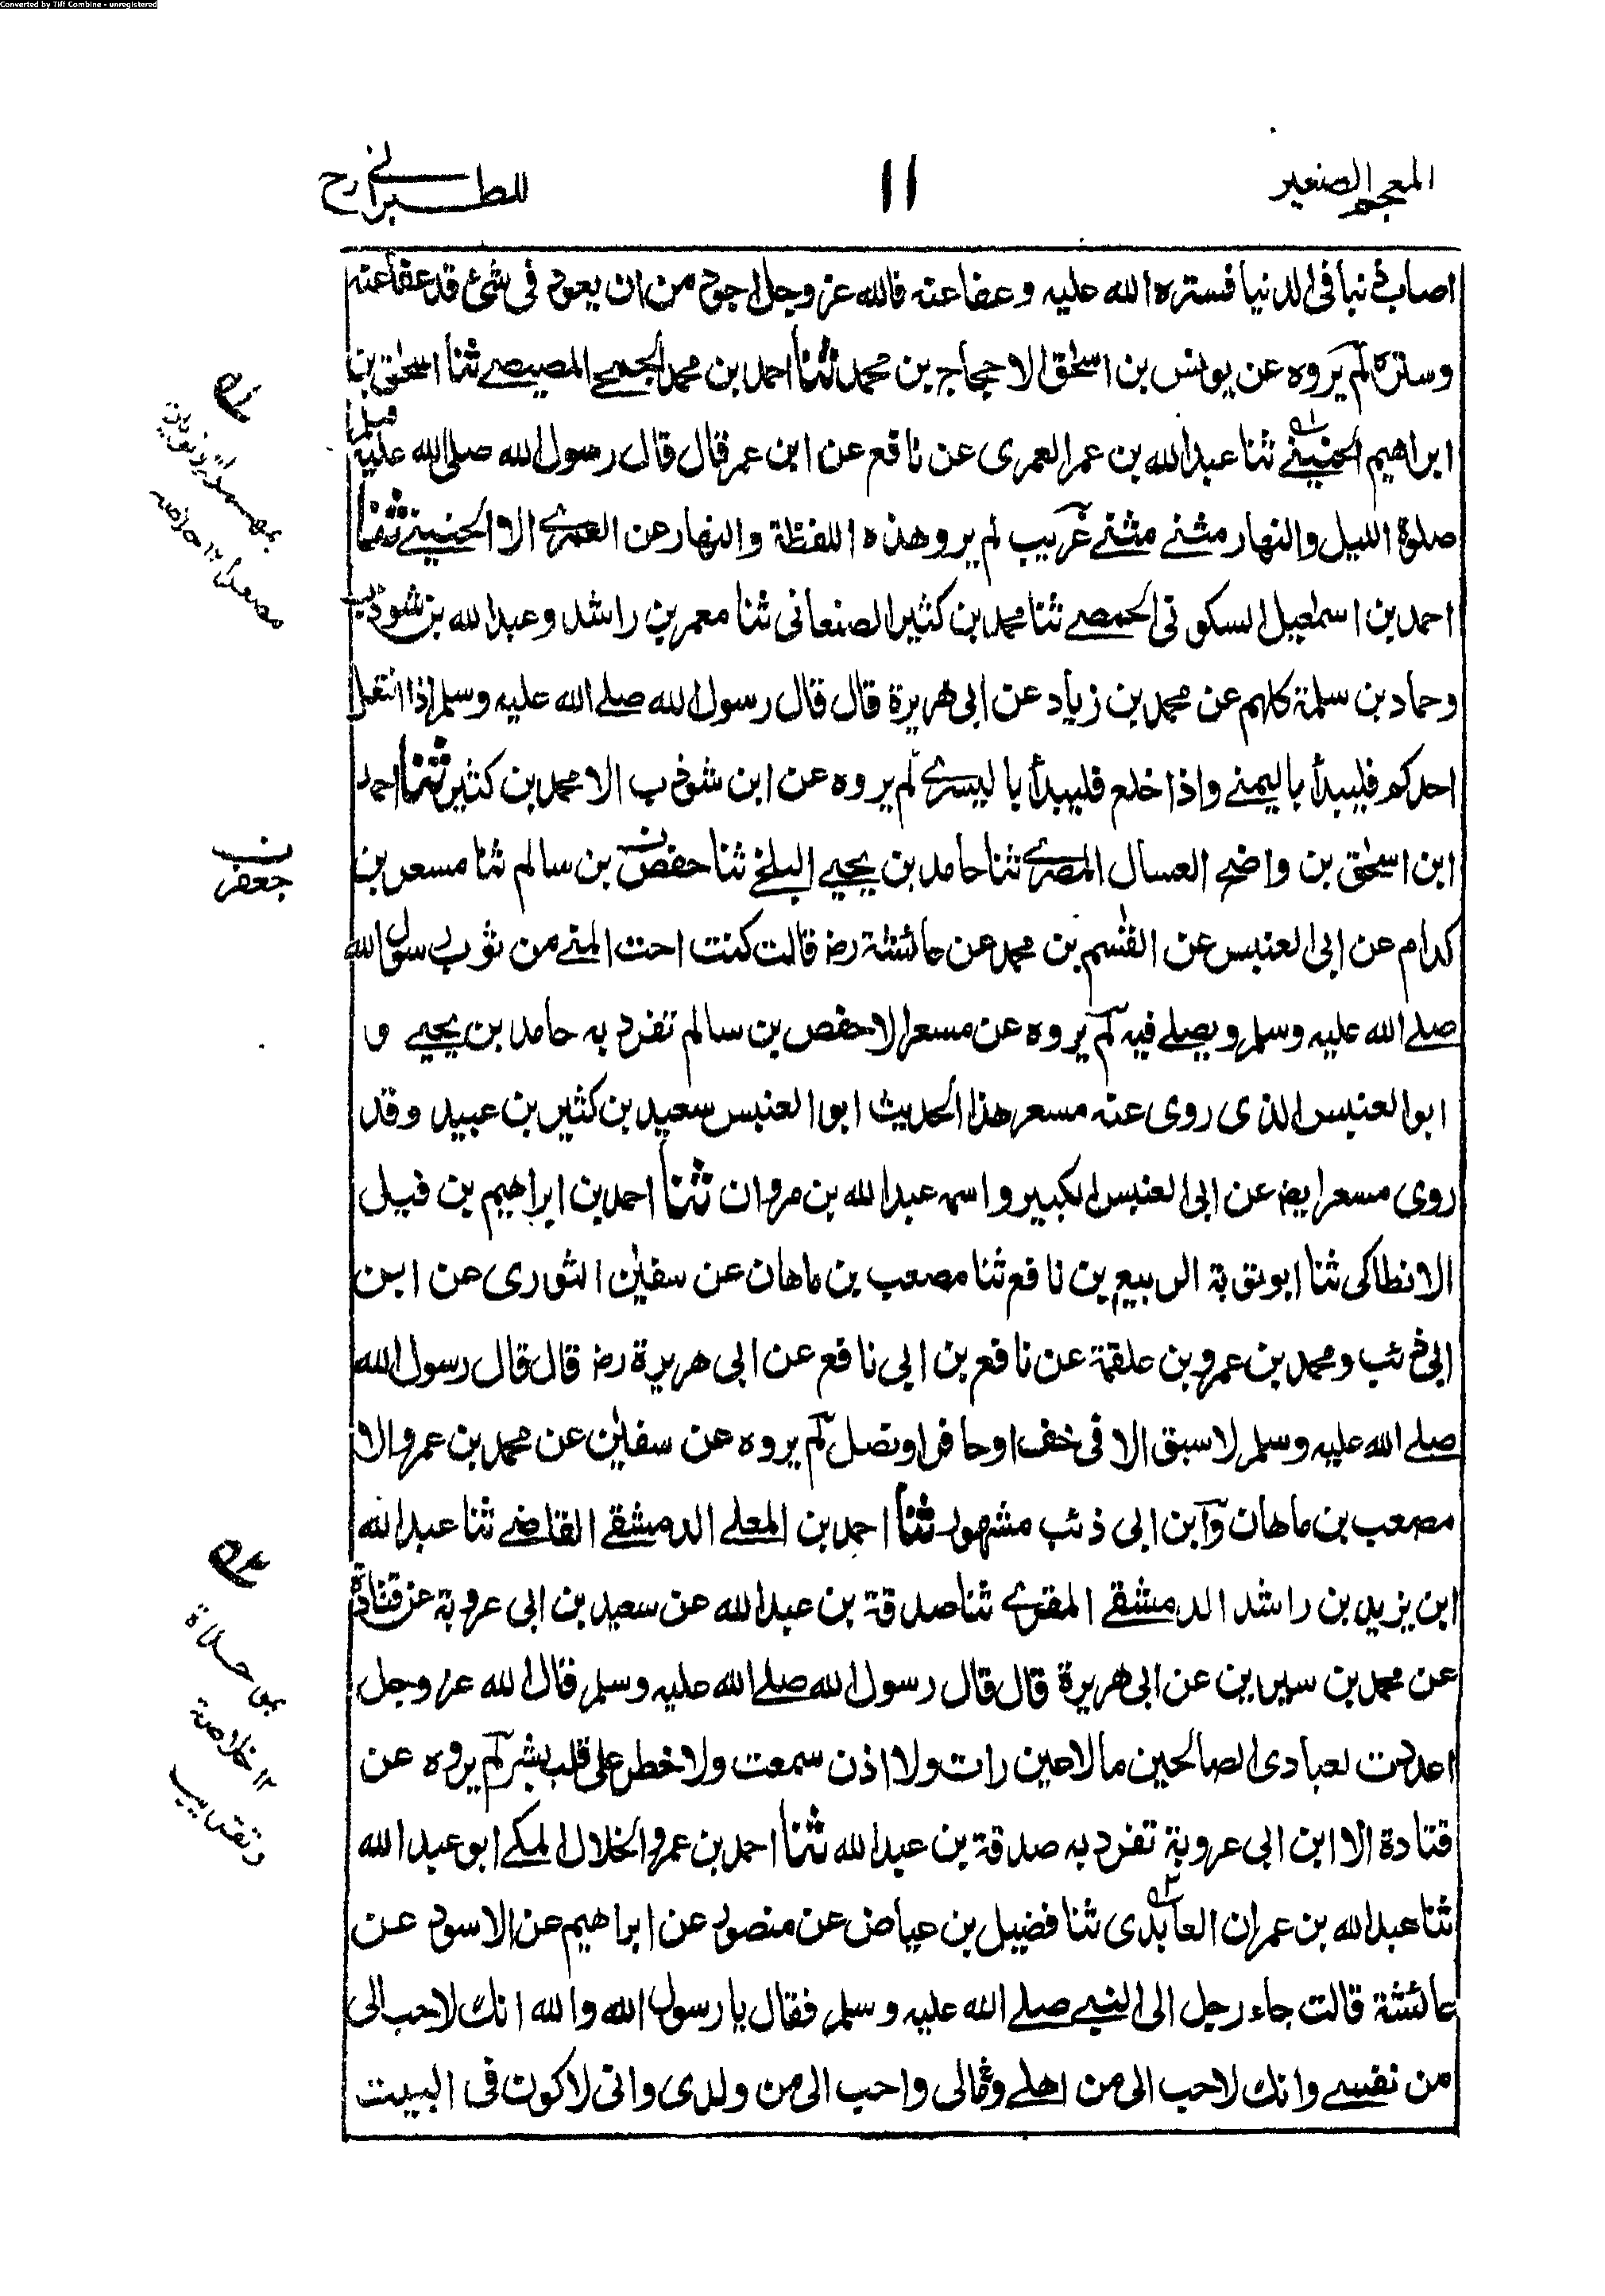 Converted by Tiff Combine - unregistered
المعجم الصغير
١١
للطبرانى رح
اصاب ذنبا فى الدنيا فستره الله عليه وعفا عنه فالله عز وجل اجود من ان يعود فى شئ قد عفا عنه
وستره لم يروه عن يونس بن اسحٰق الا حجاج بن محمد ثنا احمد بن محمد الجمحے المصيصے ثنا اسحٰق بن
ابراهيم الحنينے ثنا عبد الله بن عمر العمرى عن نافع عن ابن عمر قال قال رسول الله صلى الله عليه وسلم
صلوة الليل والنهار مثنے مثنے غريب لم يرو هذه اللفظة والنهار عن العمرے الا الحنينے ثنا
احمد بن اسمٰعيل السكونى الحمصے ثنا محمد بن كثير الصنعانى ثنا معمر بن راشد وعبد الله بن شوذب
وحماد بن سلمة كلهم عن محمد بن زياد عن ابى هريرة قال قال رسول الله صلے الله عليه وسلم اذا انتعل
احدكم فليبدأ باليمنے واذا خلع فليبدأ باليسرے لم يروه عن ابن شوذب الا محمد بن كثير ثنا احمد
ابن اسحٰق بن واضح العسال المصرے ثنا حامد بن يحيے البلخے ثنا حفص بن سالم ثنا مسعر بن
كدام عن ابى العنبس عن القٰسم بن محمد عن عائشة رض قالت كنت احت المنے من ثوب رسول الله
صلے الله عليه وسلم ويصلے فيه لم يروه عن مسعر الا حفص بن سالم تفرد به حامد بن يحيے و
ابو العنبس الذى روى عنه مسعر هذا الحديث ابو العنبس سعيد بن كثير بن عبيد وقد
روى مسعر ايض عن ابى العنبس الكبير واسمه عبد الله بن مروان ثنا احمد بن ابراهيم بن فيل
الانطاكى ثنا ابو توبة الربيع بن نافع ثنا مصعب بن ماهان عن سفيٰن الثورى عن ابن
ابى ذئب ومحمد بن عمرو بن علقمة عن نافع بن ابى نافع عن ابى هريرة رض قال قال رسول الله
صلے الله عليه وسلم لا سبق الا فى خف او حافر او نصل لم يروه عن سفيٰن عن محمد بن عمرو الا
مصعب بن ماهان وابن ابى ذئب مشهور ثنا احمد بن المعلے الدمشقے القاضے ثنا عبد الله
ابن يزيد بن راشد الدمشقے المقرے ثنا صدقة بن عبد الله عن سعيد بن ابى عروبة عن قتادة
عن محمد بن سيرين عن ابى هريرة قال قال رسول الله صلے الله عليه وسلم قال الله عز وجل
اعددت لعبادى الصالحين ما لا عين رات ولا اذن سمعت ولا خطر على قلب بشر لم يروه عن
قتادة الا ابن ابى عروبة تفرد به صدقة بن عبد الله ثنا احمد بن عمرو الخلال المكے ابو عبد الله
ثنا عبد الله بن عمران العابدى ثنا فضيل بن عياض عن منصور عن ابراهيم عن الاسود عن
عائشة قالت جاء رجل الى النبے صلے الله عليه وسلم فقال يا رسول الله والله انك لاحب الى
من نفسے وانك لاحب الى من اهلے ومالى واحب الى من ولدى وانى لاكون فى البيت
ن
جعفر
بموحدة
١٢ خلاصة
وتقريب